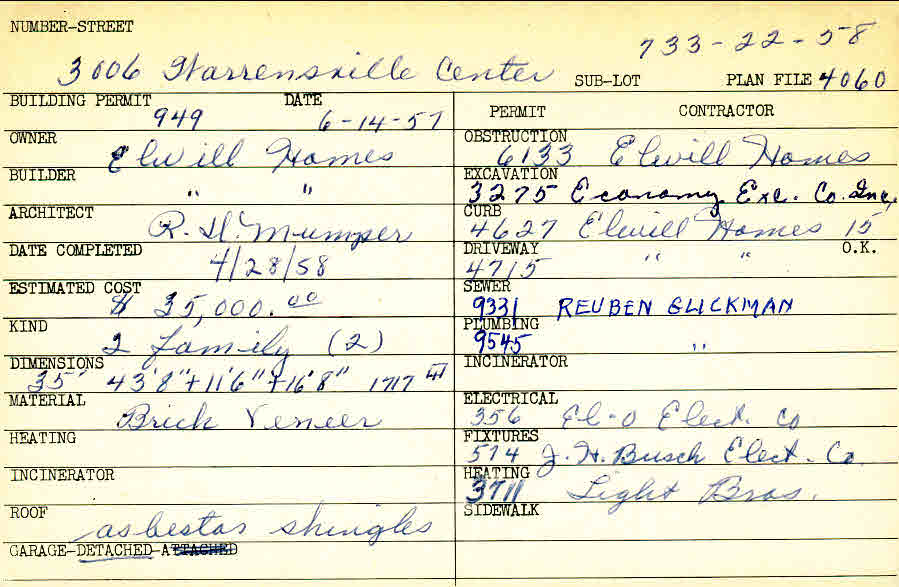 NUMBER-STREET
733-22-58
3006 Warrensville Center SUB-LOT PLAN FILE 4060
BUILDING PERMIT DATE
949 6-14-57
OWNER
Elwill Homes
BUILDER
" "
ARCHITECT
R. H. Mumper
DATE COMPLETED
4/28/58
ESTIMATED COST
$ 35,000.00
KIND
2 family (2)
DIMENSIONS
35' 43'8"+11'6"+16'8" 1717
MATERIAL
Brick Veneer
HEATING
INCINERATOR
ROOF
asbestos shingles
GARAGE-DETACHED-ATTACHED
PERMIT CONTRACTOR
OBSTRUCTION
6133 Elwill Homes
EXCAVATION
3275 Economy Exc. Co. Inc.
CURB
4627 Elwill Homes 15
DRIVEWAY O.K.
4715 " "
SEWER
9331 REUBEN GLICKMAN
PLUMBING
9545 "
INCINERATOR
ELECTRICAL
356 El-O Elect. Co
FIXTURES
514 J. H. Busch Elect. Co.
HEATING
3711 Light Bros.
SIDEWALK